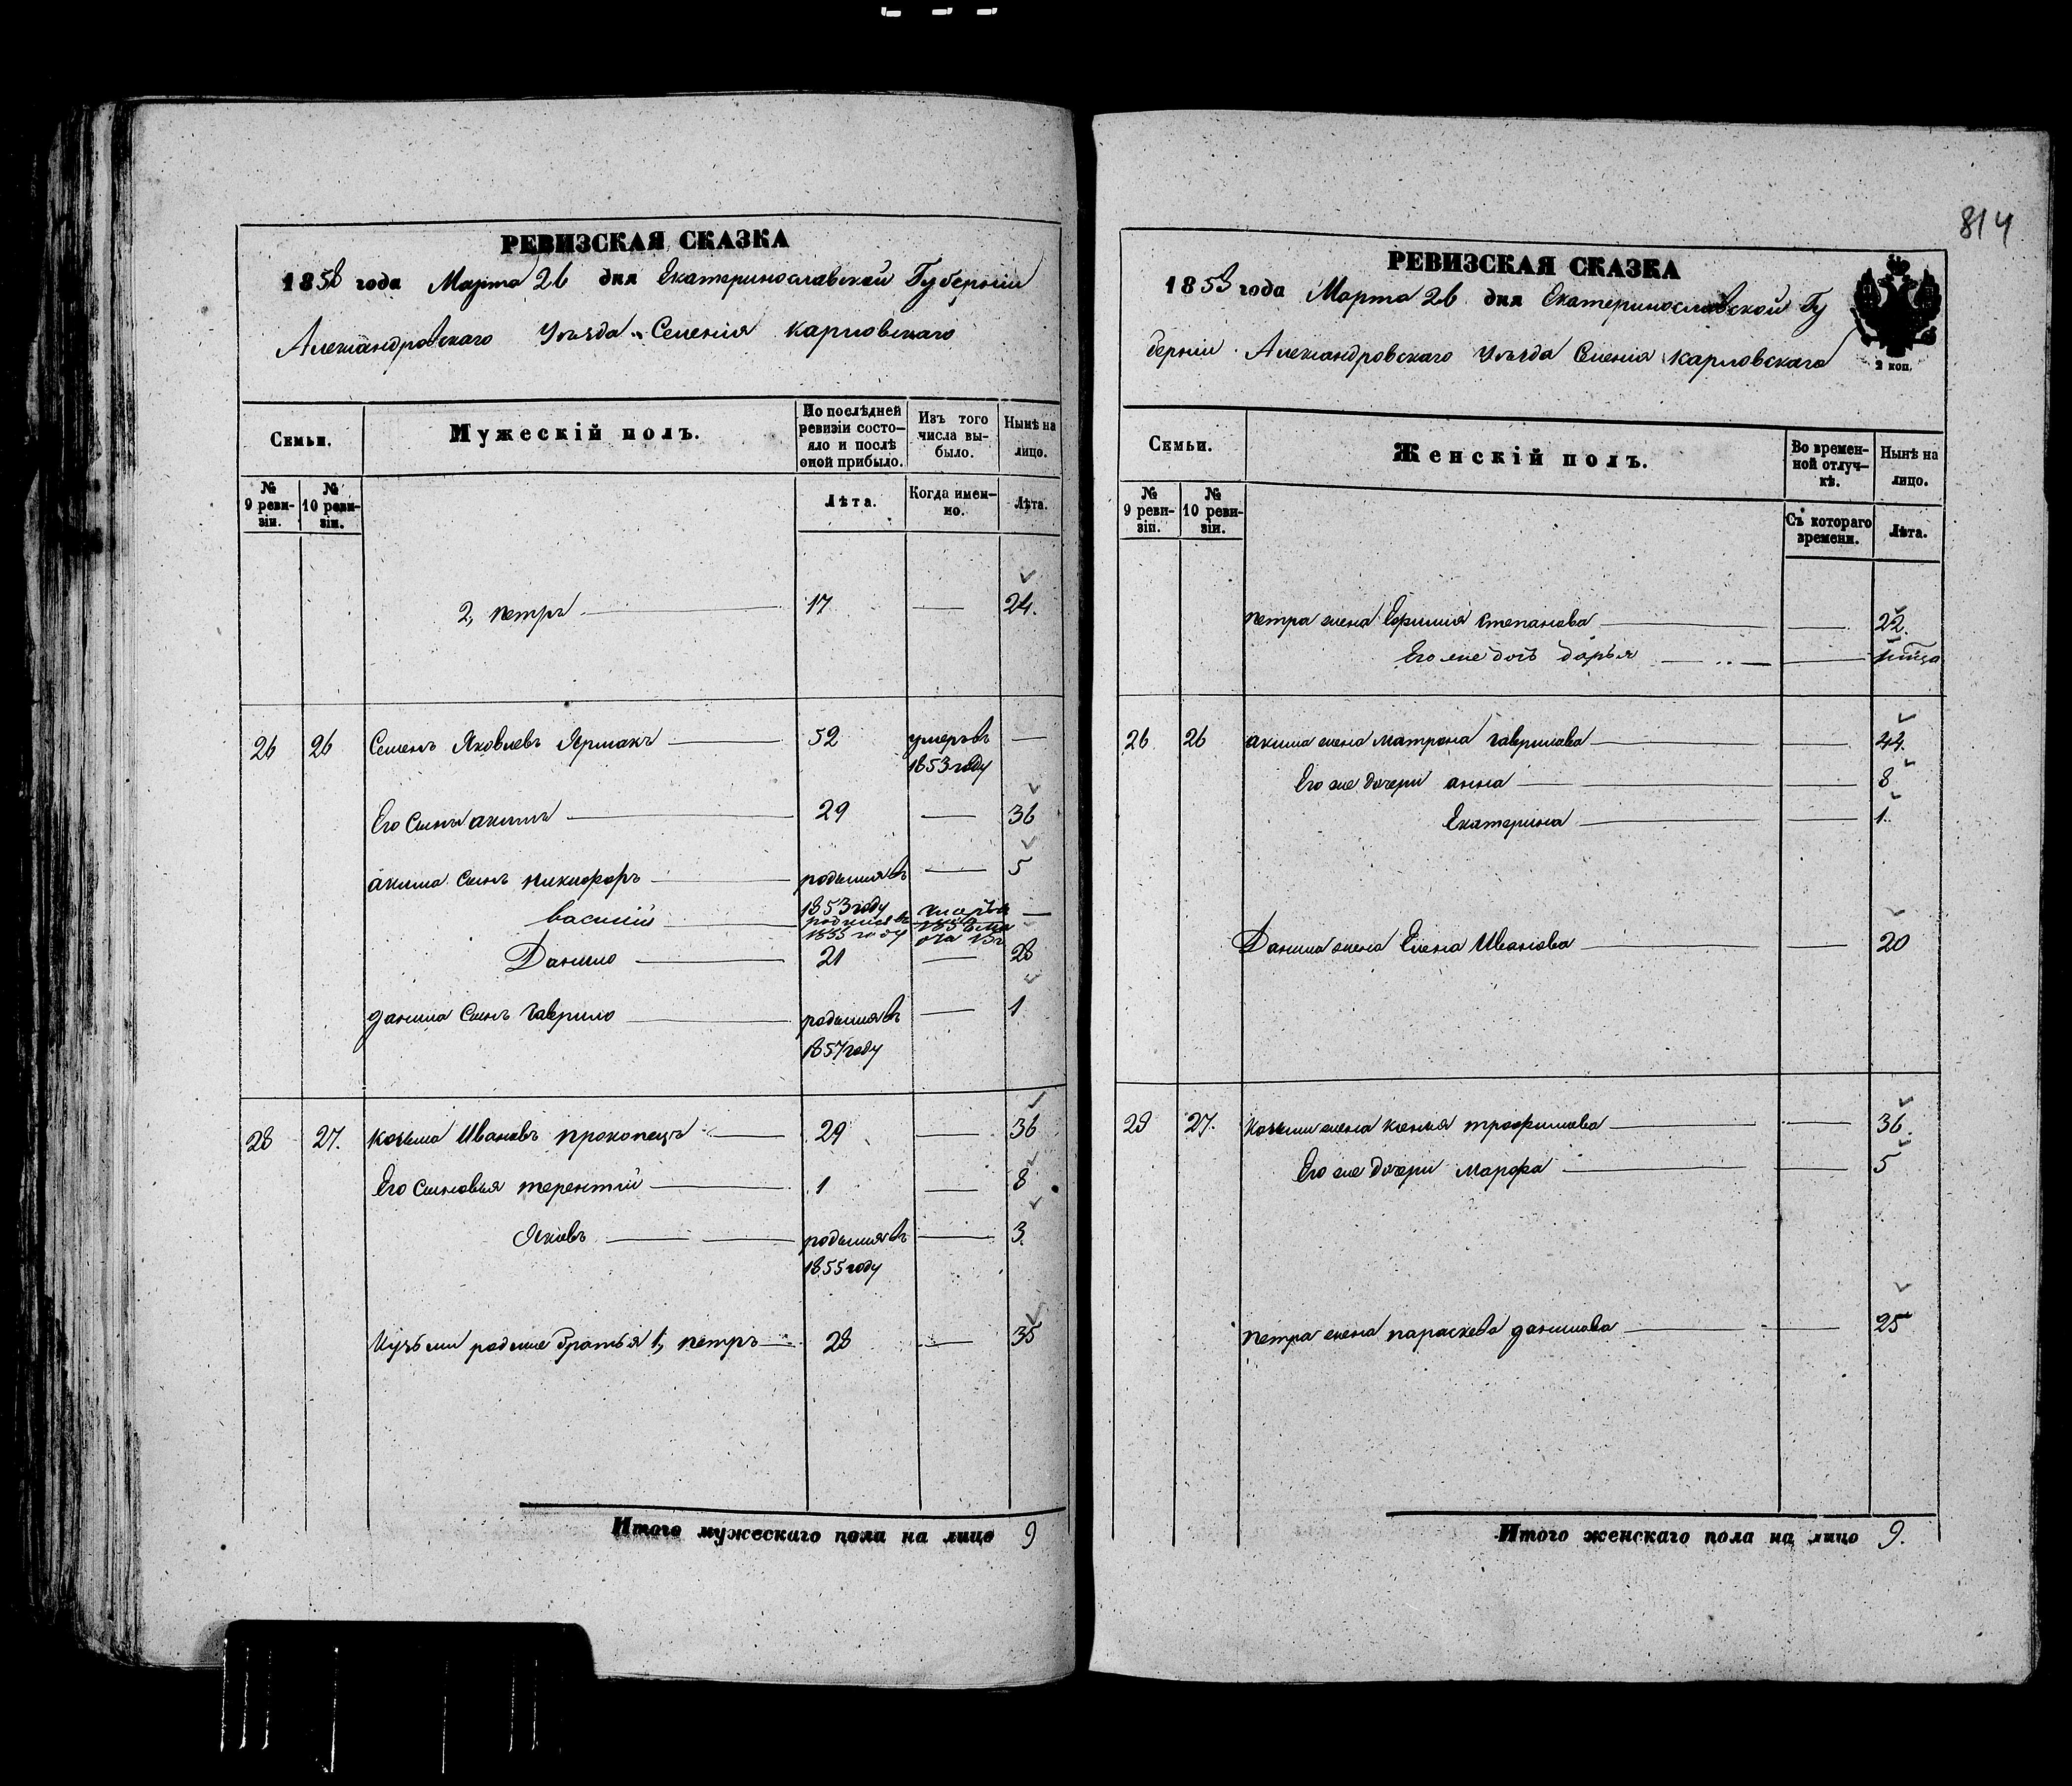 814
РЕВИЗСКАЯ СКАЗКА
1858 года Марта 26 дня Екатеринославской Губернiи
Александровскаго Уѣзда Селенiя Карловскаго
Семьи.
Мужескiй полъ.
По послѣдней ревизiи состо-
яло и послѣ оной прибыло.
Изъ того числа вы-
было.
Нынѣ на лицо.
№ 9 реви-
зiи.
№ 10 реви-
зiи.
Лѣта.
Когда имен-
но.
Лѣта.
2, Петръ 17 — 24.
26 26 Семенъ Яковлевъ Ярмакъ 52 умеръ въ —
1853 году
Его Сынъ акимъ 29 — 36
акима Сынъ никифоръ родился въ — 5
1853 году
василiй родился въ —
1855 году
Данило 21 — 28
данила Сынъ гаврило родился въ — 1
1857 году
28 27. Козьма Ивановъ прокопецъ 29 — 36
Его Сыновья терентiй 1 — 8
Яковъ родился въ — 3.
1855 году
Кузьмы родные братья 1, петръ 28 — 35
Итого мужескаго пола на лицо 9
РЕВИЗСКАЯ СКАЗКА
1858 года Марта 26 дня Екатеринославской Гу
бернiи Александровскаго Уѣзда Селенiя Карловскаго
2 коп.
Семьи.
Женскiй полъ.
Во времен-
ной отлуч-
кѣ.
Нынѣ на лицо.
№ 9 реви-
зiи.
№ 10 реви-
зiи.
Съ котораго времени.
Лѣта.
Петра жена Ефимия Степанова — 22.
Его же дочь дарья —
26 26 акима жена матрона гаврилова — 44.
Его же дочери анна — 8
Екатерина — 1.
Данила жена Елена Иванова — 20
28 27. Козьмы жена ксенiя трофимова — 36.
Его же дочери марфа — 5
петра жена параскева данилова — 25
Итого женскаго пола на лицо 9.